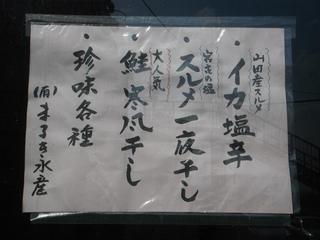 山田産スルメ
・イカ塩辛
宮古の塩
・スルメ一夜干し
大人気
・鮭寒風干し
・珍味各種
(有)まるき水産